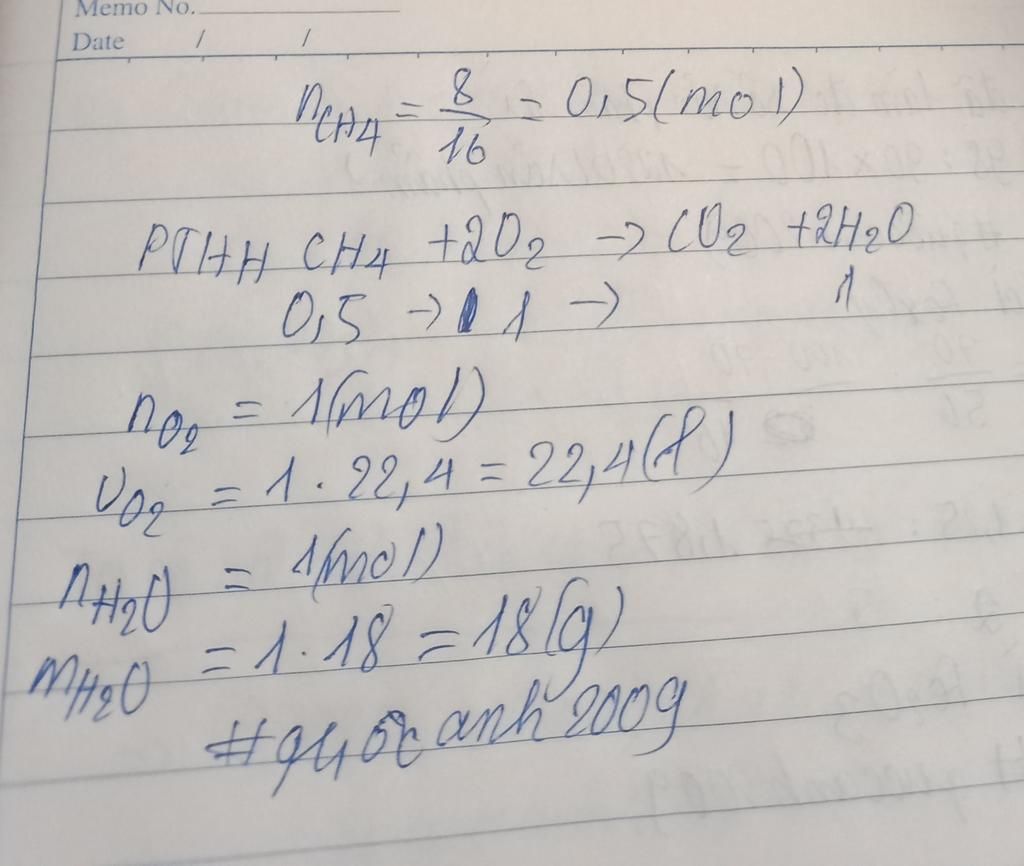 Memo No.
Date / /
nCH4 = 8/16 = 0,5(mol)
PTHH CH4 +2O2 → CO2 +2H2O
0,5 → 1 → 1
nO2 = 1(mol)
VO2 = 1 . 22,4 = 22,4(l)
nH2O = 1(mol)
mH2O = 1 . 18 = 18(g)